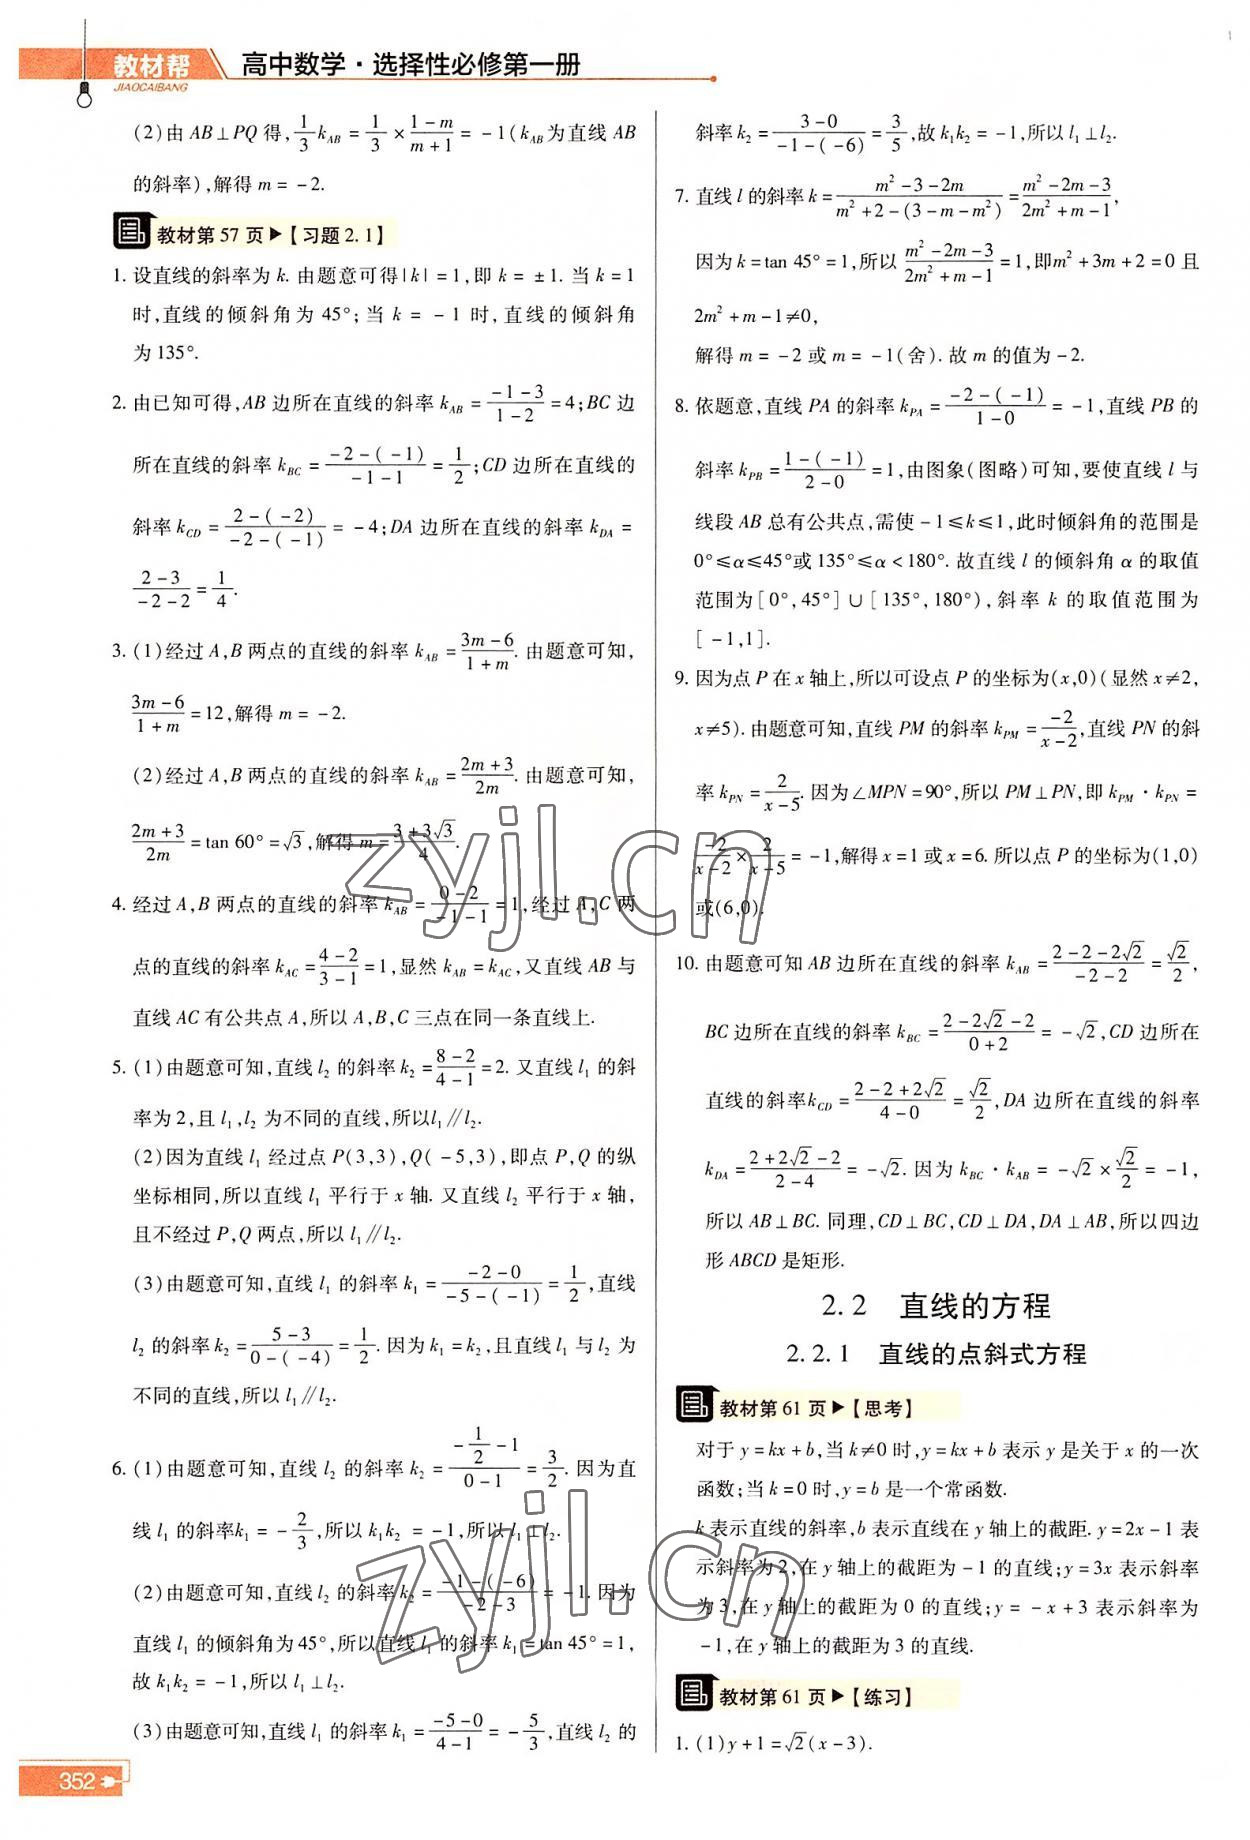 教材帮
JIAOCAIBANG
高中数学·选择性必修第一册
(2)由 AB⊥PQ 得,$\frac{1}{3}k_{AB}=\frac{1}{3}×\frac{1-m}{m+1}=-1$($k_{AB}$为直线 AB
的斜率),解得 m=-2.
教材第 57 页▶【习题2.1】
1. 设直线的斜率为 k. 由题意可得|k|=1,即 k=±1. 当 k=1
时,直线的倾斜角为 45°;当 k=-1 时,直线的倾斜角
为135°.
2. 由已知可得,AB 边所在直线的斜率 $k_{AB}=\frac{-1-3}{1-2}=4$;BC 边
所在直线的斜率 $k_{BC}=\frac{-2-(-1)}{-1-1}=\frac{1}{2}$;CD 边所在直线的
斜率 $k_{CD}=\frac{2-(-2)}{-2-(-1)}=-4$;DA 边所在直线的斜率 $k_{DA}=$
$\frac{2-3}{-2-2}=\frac{1}{4}$.
3. (1)经过 A,B 两点的直线的斜率 $k_{AB}=\frac{3m-6}{1+m}$. 由题意可知,
$\frac{3m-6}{1+m}=12$,解得 m=-2.
(2)经过 A,B 两点的直线的斜率 $k_{AB}=\frac{2m+3}{2m}$. 由题意可知,
$\frac{2m+3}{2m}=\tan 60°=\sqrt{3}$,解得 $m=\frac{3+3\sqrt{3}}{4}$.
4. 经过 A,B 两点的直线的斜率 $k_{AB}=\frac{0-2}{-1-1}=1$,经过 A,C 两
点的直线的斜率 $k_{AC}=\frac{4-2}{3-1}=1$,显然 $k_{AB}=k_{AC}$,又直线 AB 与
直线 AC 有公共点 A,所以 A,B,C 三点在同一条直线上.
5. (1)由题意可知,直线 $l_2$ 的斜率 $k_2=\frac{8-2}{4-1}=2$. 又直线 $l_1$ 的斜
率为2,且 $l_1,l_2$ 为不同的直线,所以$l_1∥l_2$.
(2)因为直线 $l_1$ 经过点 P(3,3),Q(-5,3),即点 P,Q 的纵
坐标相同,所以直线 $l_1$ 平行于 x 轴. 又直线 $l_2$ 平行于 x 轴,
且不经过 P,Q 两点,所以 $l_1∥l_2$.
(3)由题意可知,直线 $l_1$ 的斜率 $k_1=\frac{-2-0}{-5-(-1)}=\frac{1}{2}$,直线
$l_2$ 的斜率 $k_2=\frac{5-3}{0-(-4)}=\frac{1}{2}$. 因为 $k_1=k_2$,且直线 $l_1$ 与 $l_2$ 为
不同的直线,所以 $l_1∥l_2$.
6. (1)由题意可知,直线 $l_2$ 的斜率 $k_2=\frac{-\frac{1}{2}-1}{0-1}=\frac{3}{2}$. 因为直
线 $l_1$ 的斜率$k_1=-\frac{2}{3}$,所以 $k_1k_2=-1$,所以 $l_1⊥l_2$.
(2)由题意可知,直线 $l_2$ 的斜率 $k_2=\frac{-1-(-6)}{-2-3}=-1$. 因为
直线 $l_1$ 的倾斜角为45°,所以直线 $l_1$ 的斜率 $k_1=\tan 45°=1$,
故 $k_1k_2=-1$,所以 $l_1⊥l_2$.
(3)由题意可知,直线 $l_1$ 的斜率 $k_1=\frac{-5-0}{4-1}=-\frac{5}{3}$,直线 $l_2$ 的
352
斜率 $k_2=\frac{3-0}{-1-(-6)}=\frac{3}{5}$,故 $k_1k_2=-1$,所以 $l_1⊥l_2$.
7. 直线 l 的斜率 $k=\frac{m^2-3-2m}{m^2+2-(3-m-m^2)}=\frac{m^2-2m-3}{2m^2+m-1}$,
因为 k=tan 45°=1,所以 $\frac{m^2-2m-3}{2m^2+m-1}=1$,即$m^2+3m+2=0$ 且
$2m^2+m-1≠0$,
解得 m=-2 或 m=-1(舍). 故 m 的值为-2.
8. 依题意,直线 PA 的斜率 $k_{PA}=\frac{-2-(-1)}{1-0}=-1$,直线 PB 的
斜率 $k_{PB}=\frac{1-(-1)}{2-0}=1$,由图象(图略)可知,要使直线 l 与
线段 AB 总有公共点,需使 -1≤k≤1,此时倾斜角的范围是
0°≤α≤45°或 135°≤α<180°. 故直线 l 的倾斜角 α 的取值
范围为[0°,45°]∪[135°,180°),斜率 k 的取值范围为
[-1,1].
9. 因为点 P 在 x 轴上,所以可设点 P 的坐标为(x,0)(显然 x≠2,
x≠5). 由题意可知,直线 PM 的斜率 $k_{PM}=\frac{-2}{x-2}$,直线 PN 的斜
率 $k_{PN}=\frac{2}{x-5}$. 因为∠MPN=90°,所以 PM⊥PN,即 $k_{PM}·k_{PN}=$
$\frac{-2}{x-2}×\frac{2}{x-5}=-1$,解得 x=1 或 x=6. 所以点 P 的坐标为(1,0)
或(6,0).
10. 由题意可知 AB 边所在直线的斜率 $k_{AB}=\frac{2-2-2\sqrt{2}}{-2-2}=\frac{\sqrt{2}}{2}$,
BC 边所在直线的斜率 $k_{BC}=\frac{2-2\sqrt{2}-2}{0+2}=-\sqrt{2}$,CD 边所在
直线的斜率$k_{CD}=\frac{2-2+2\sqrt{2}}{4-0}=\frac{\sqrt{2}}{2}$,DA 边所在直线的斜率
$k_{DA}=\frac{2+2\sqrt{2}-2}{2-4}=-\sqrt{2}$. 因为 $k_{BC}·k_{AB}=-\sqrt{2}×\frac{\sqrt{2}}{2}=-1$,
所以 AB⊥BC. 同理,CD⊥BC,CD⊥DA,DA⊥AB,所以四边
形 ABCD 是矩形.
2.2 直线的方程
2.2.1 直线的点斜式方程
教材第 61 页▶【思考】
对于 y=kx+b,当 k≠0 时,y=kx+b 表示 y 是关于 x 的一次
函数;当 k=0 时,y=b 是一个常函数.
k 表示直线的斜率,b 表示直线在 y 轴上的截距. y=2x-1 表
示斜率为 2,在 y 轴上的截距为 -1 的直线;y=3x 表示斜率
为 3,在 y 轴上的截距为 0 的直线;y=-x+3 表示斜率为
-1,在 y 轴上的截距为 3 的直线.
教材第 61 页▶【练习】
1. (1)y+1=$\sqrt{2}$(x-3).
zyjl.cn
zyjl.cn